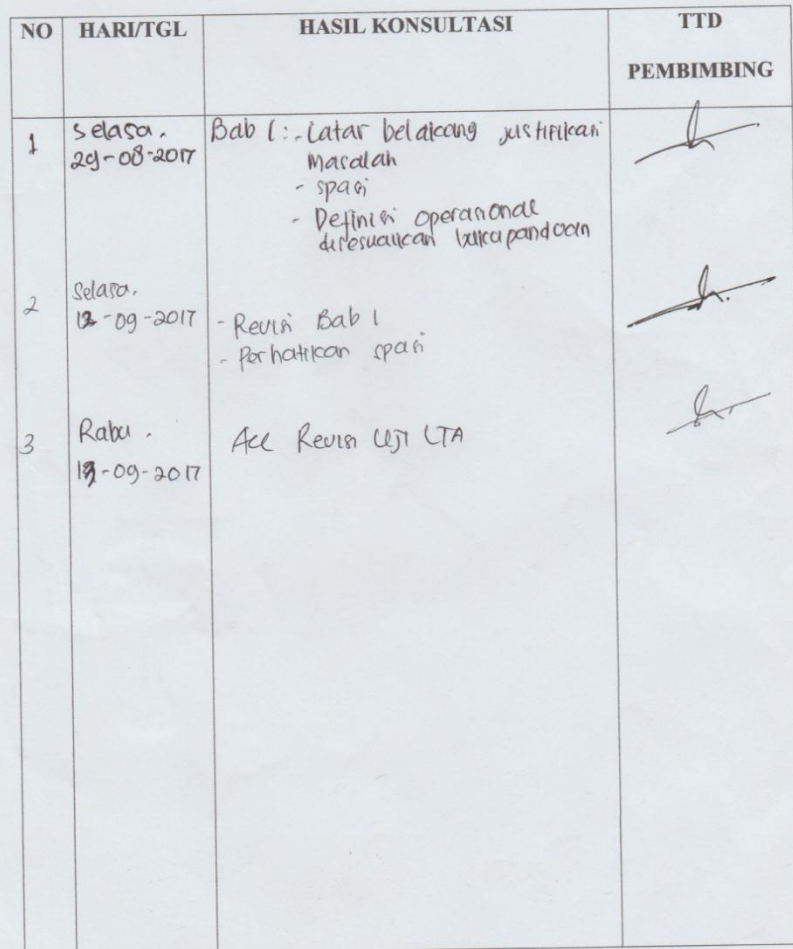 NO HARI/TGL HASIL KONSULTASI TTD
PEMBIMBING
1 Selasa. Bab I :- Latar belakang justifikasi
29-08-2017 Masalah
- spasi
- Definisi operasional
disesuaikan buku pandoan
Selasa.
2 12-09-2017 - Revisi Bab 1
- Perhatikan spasi
3 Rabu . Acc Revisi Uji LTA
13-09-2017